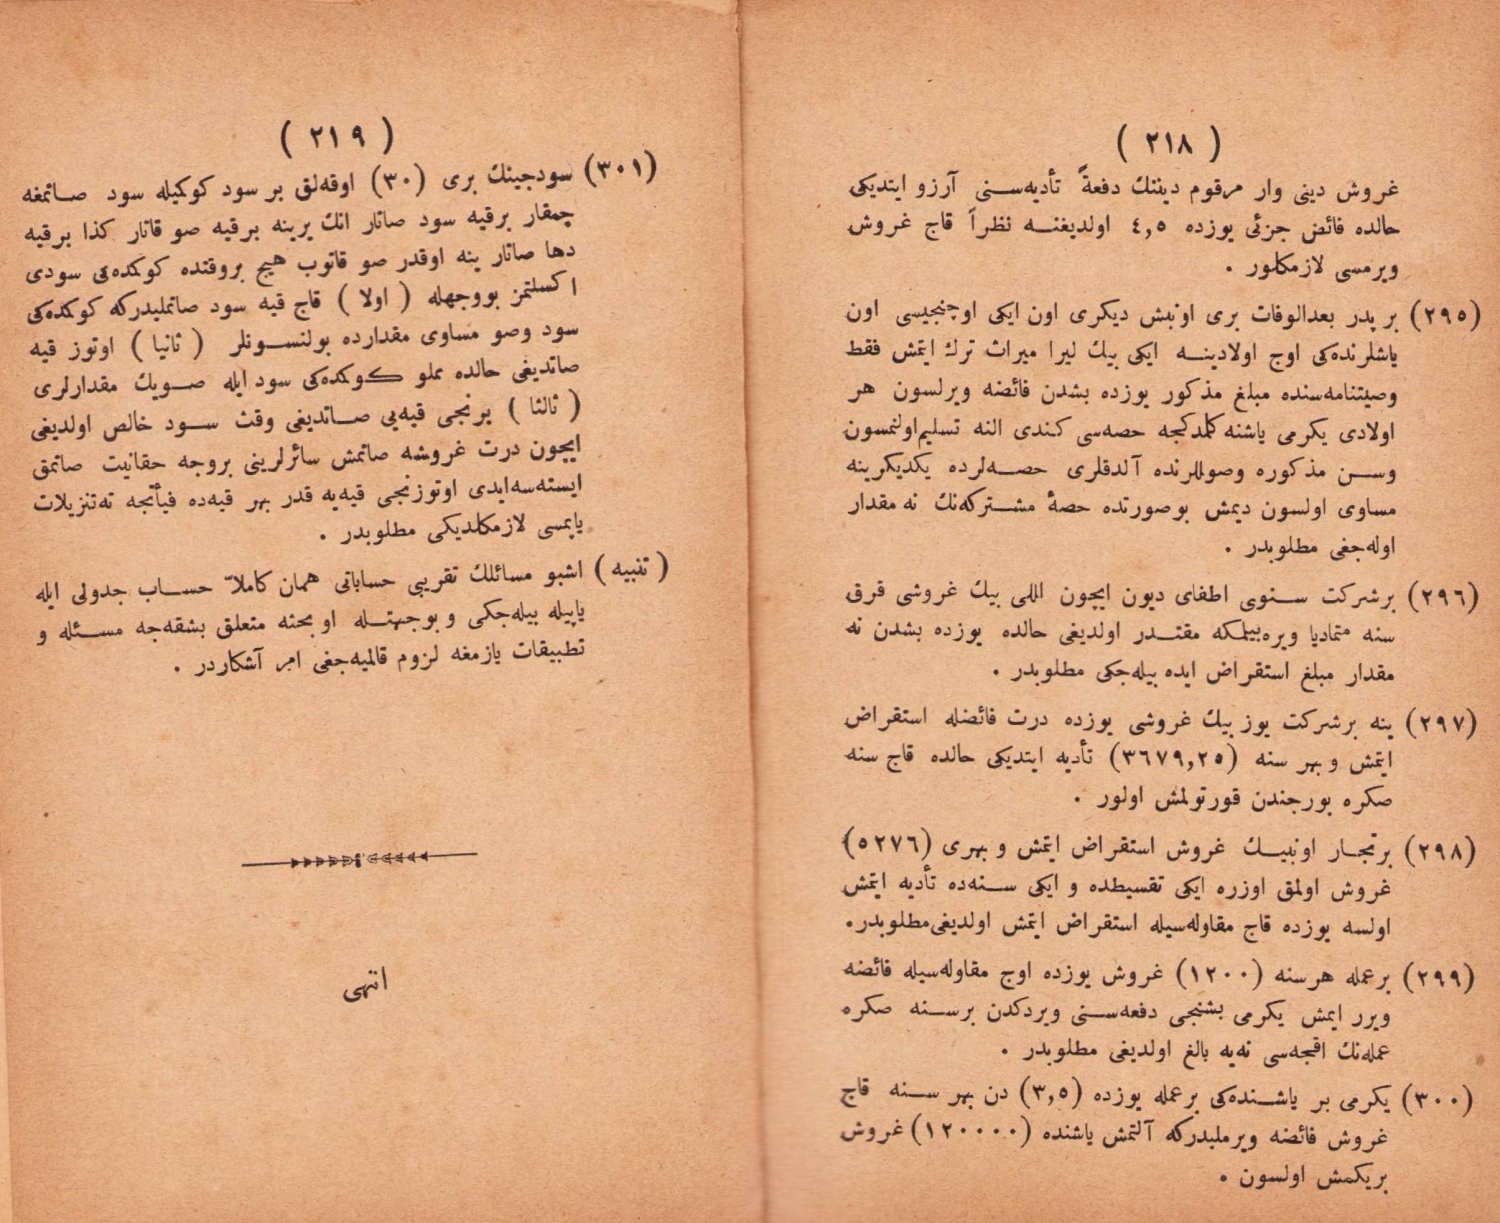 ( ٢١٨ )
غروش دینی وار مرقوم دیننك دفعةً تأدیه‌سنی آرزو ایتدیكی
حالده فائض جزئی یوزده ٤,٥ اولدیغنه نظراً قاچ غروش
ویرمسی لازمكلور .
(٢٩٥) بر پدر بعدالوفات بری اونبش دیكری اون ایكی اوچنجیسی اون
یاشلرنده‌كی اوچ اولادینه ایكی بیك لیرا میراث ترك ایتمش فقط
وصیتنامه‌سنده مبلغ مذكور یوزده بشدن فائضه ویرلسون هر
اولادی یكرمی یاشنه كلدكجه حصه‌سی كندی النه تسلیم اولنمسون
وسن مذكوره وصوللرنده آلدقلری حصه‌لرده یكدیكرینه
مساوی اولسون دیمش بوصورتده حصهٔ مشتركه‌نك نه مقدار
اوله‌جغی مطلوبدر .
(٢٩٦) برشركت سنوی اطفای دیون ایچون اللی بیك غروشی قرق
سنه متمادیا ویره‌بیلمكه مقتدر اولدیغی حالده یوزده بشدن نه
مقدار مبلغ استقراض ایده بیله‌جكی مطلوبدر .
(٢٩٧) ینه برشركت یوز بیك غروشی یوزده درت فائضله استقراض
ایتمش و بهر سنه (٣٦٧٩,٢٥) تأدیه ایتدیكی حالده قاچ سنه
صكره بورجندن قورتولمش اولور .
(٢٩٨) برتجار اونبیك غروش استقراض ایتمش و بهری (٥٢٧٦)
غروش اولمق اوزره ایكی تقسیطده و ایكی سنه‌ده تأدیه ایتمش
اولسه یوزده قاچ مقاوله‌سیله استقراض ایتمش اولدیغی مطلوبدر.
(٢٩٩) برعمله هرسنه (١٢٠٠) غروش یوزده اوچ مقاوله‌سیله فائضه
ویرر ایمش یكرمی بشنجی دفعه‌سنی ویردكدن برسنه صكره
عمله‌نك اقچه‌سی نه‌یه بالغ اولدیغی مطلوبدر .
(٣٠٠) یكرمی بر یاشنده‌كی برعمله یوزده (٣,٥) دن بهر سنه قاچ
غروش فائضه ویرملیدركه آلتمش یاشنده (١٢٠٠٠٠) غروش
بریكمش اولسون .
( ٢١٩ )
(٣٠١) سودجینك بری (٣٠) اوقه‌لق بر سود كوكیله سود صاتمغه
چیقار برقیه سود صاتار انك یرینه برقیه صو قاتار كذا برقیه
دها صاتار ینه اوقدر صو قاتوب هیچ بروقتده كوكده‌كی سودی
اكسلتمز بووجهله ( اولا ) قاچ قیه سود صاتملیدركه كوكده‌كی
سود وصو مساوی مقدارده بولنسونلر ( ثانیا ) اوتوز قیه
صاتدیغی حالده مملو كوكده‌كی سود ایله صویك مقدارلری
( ثالثا ) برنجی قیه‌یی صاتدیغی وقت سود خالص اولدیغی
ایچون درت غروشه صاتمش سائرلرینی بروجه حقانیت صاتمق
ایسته‌سه‌ایدی اوتوزنجی قیه‌یه قدر بهر قیه‌ده فیأتجه نه‌تنزیلات
یاپمسی لازمكلدیكی مطلوبدر .
( تنبیه ) اشبو مسائلك تقریبی حساباتی همان كاملاً حساب جدولی ایله
یاپیله بیله‌جكی و بوجهتله او بحثه متعلق بشقه‌جه مسئله و
تطبیقات یازمغه لزوم قالمیه‌جغی امر آشكاردر .
انتهی